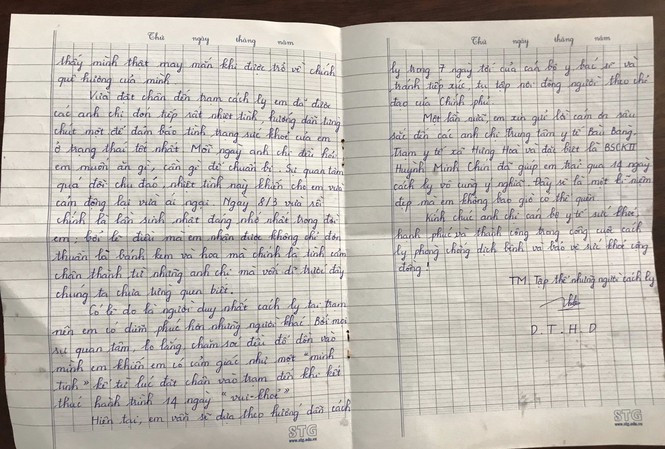 Thứ ngày tháng năm
thấy mình thật may mắn khi được trở về chính
quê hương của mình
Vừa đặt chân đến trạm cách ly em đã được
các anh chị đón tiếp rất nhiệt tình, hướng dẫn từng
chút một để đảm bảo tình trạng sức khoẻ của em
ở trạng thái tốt nhất. Mỗi ngày anh chị đều hỏi
em muốn ăn gì, cần gì để chuẩn bị. Sự quan tâm
quá đỗi chu đáo, nhiệt tình này khiến cho em vừa
cảm động lại vừa ái ngại. Ngày 8/3 vừa rồi
chính là lần sinh nhật đáng nhớ nhất trong đời
em, bởi lẽ điều mà em nhận được không chỉ đơn
thuần là bánh kem và hoa mà chính là tình cảm
chân thành từ những anh chị mà vốn dĩ trước đây
chúng ta chưa từng quen biết.
Có lẽ do là người duy nhất cách ly tại trạm
nên em có diễm phúc hơn những người khác. Bởi mọi
sự quan tâm, lo lắng, chăm sóc đều đổ dồn vào
mình em khiến em có cảm giác như một "minh
tinh" kể từ lúc đặt chân vào trạm đến khi kết
thúc hành trình 14 ngày "vui-khoẻ"
Hiện tại, em vẫn sẽ dựa theo hướng dẫn cách
STG
www.stg.edu.vn
Thứ ngày tháng năm
ly trong 7 ngày tới của cán bộ y bác sĩ và
tránh tiếp xúc, tụ tập nơi đông người theo chỉ
đạo của Chính phủ.
Một lần nữa, em xin gửi lời cảm ơn sâu
sắc đến các anh chị Trung tâm y tế Bàu Bàng,
Trạm y tế xã Hưng Hoà và đặc biệt là BSCKII
Huỳnh Minh Chín đã giúp em trải qua 14 ngày
cách ly vô cùng ý nghĩa. Đây sẽ là một kỉ niệm
đẹp mà em không bao giờ có thể quên.
Kính chúc anh chị cán bộ y tế sức khoẻ,
hạnh phúc và thành công trong công cuộc cách
ly phòng chống dịch bệnh và bảo vệ sức khoẻ cộng
đồng!
TM Tập thể những người cách ly
D.T.H.D
STG
www.stg.edu.vn